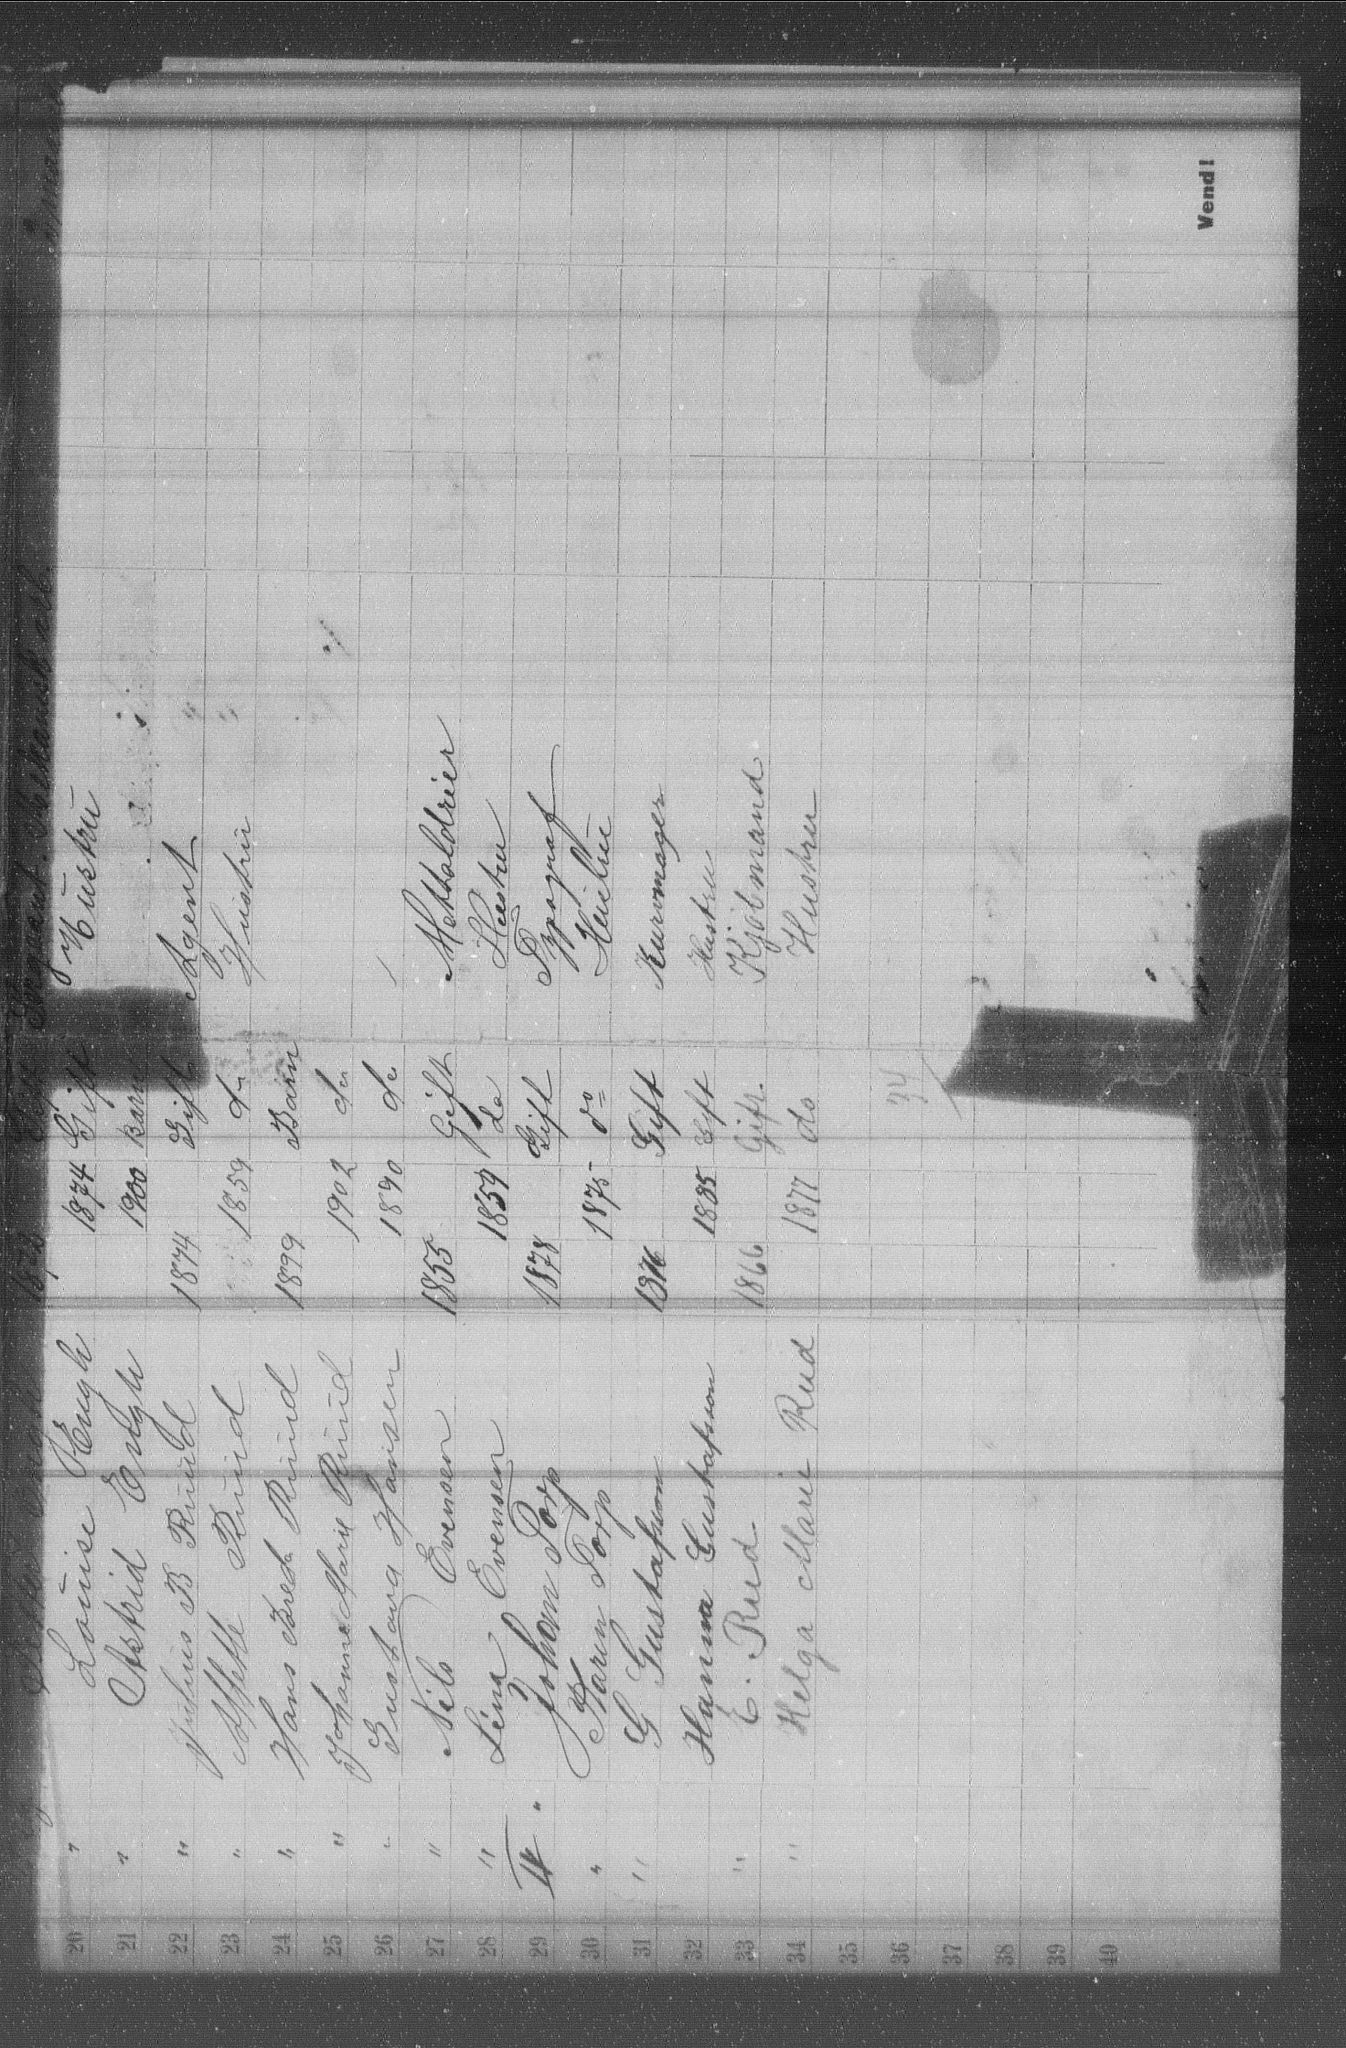 1872
20 " Louise Engh 1874 Gift Hustru
21 " Astrid Engh 1900 Barn
22 " Julius B Ruud 1874 Gift Agent
23 " Ruud 1859 do Hustru
24 " Hans Fred. Ruud 1899 Barn
25 " Johanne Marie Ruud 1902 do
26 " Gustava Hansen 1890 do
27 " Nils Evensen 1855 Gift Mettaldreier
28 " Lina Evensen 1859 do Hustru
29 IV " Johan Torp 1878 Gift Typograf
30 " Karen Torp 1875 do Hustru
31 " G Gustafsson 1876 Gift Kurvmager
32 Hanna Gustafsson 1885 Gift Hustru
33 " E. Rud 1866 Gift. Kjøbmand
34 " Helga Marie Rud 1877 do Hustru
35
36 34
37
38
39
40
Wend!